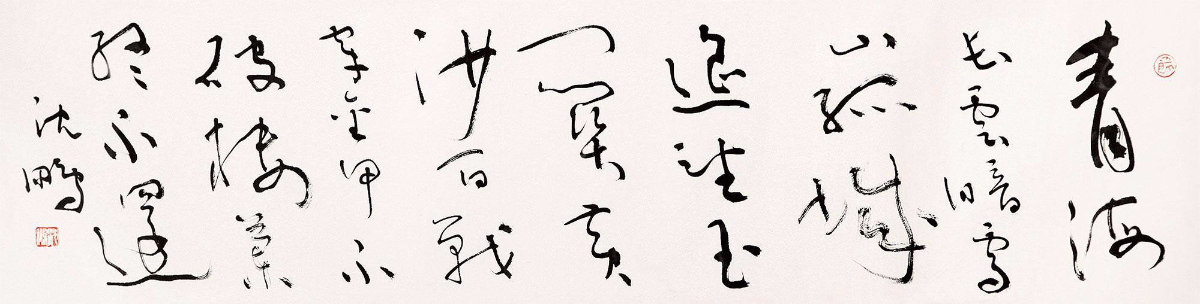 青海
長雲暗雪
山孤城
遥望玉
門關黄
沙百戰
穿金甲不
破樓蘭
終不還
沈鵬